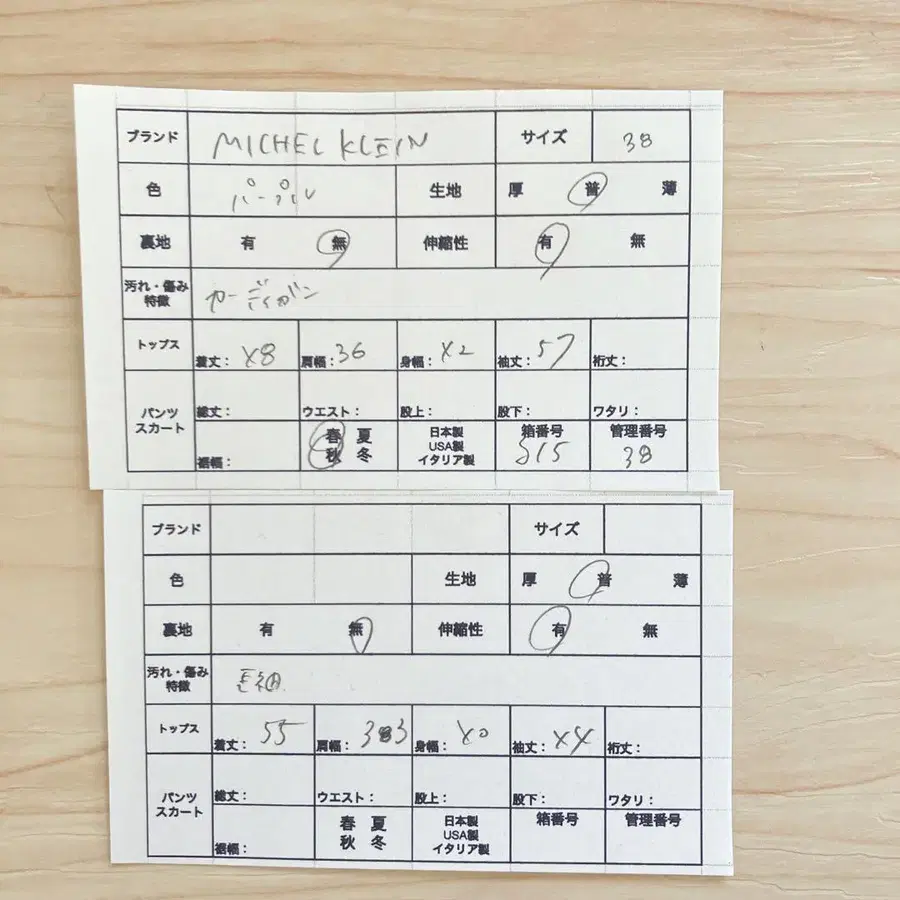 ブランド MICHEL KLEIN サイズ 38
色 パープル 生地 厚 普 薄
裏地 有 無 伸縮性 有 無
汚れ・傷み
特徴 カーディガン
トップス 着丈: 48 肩幅: 36 身幅: 42 袖丈: 57 裄丈:
パンツ
スカート 総丈: ウエスト: 股上: 股下: ワタリ:
裾幅: 春 夏
秋 冬
日本製
USA製
イタリア製
箱番号
管理番号
38
ブランド サイズ
色 生地 厚 普 薄
裏地 有 無 伸縮性 有 無
汚れ・傷み
特徴
トップス 着丈: 55 肩幅: 身幅: 40 袖丈: 44 裄丈:
パンツ
スカート 総丈: ウエスト: 股上: 股下: ワタリ:
裾幅: 春 夏
秋 冬
日本製
USA製
イタリア製
箱番号
管理番号